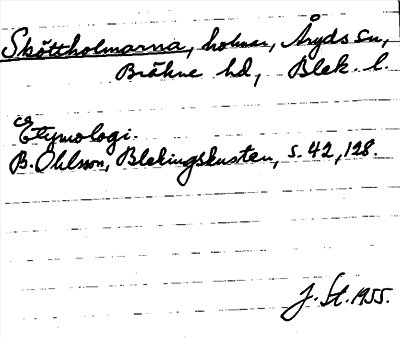 Sköttholmarna, holmar, Åryds sn,
Bräkne hd, Blek. l.
ca
Etymologi.
B. Ohlsson, Blekingskusten, s. 42, 128.
J. St. 1955.